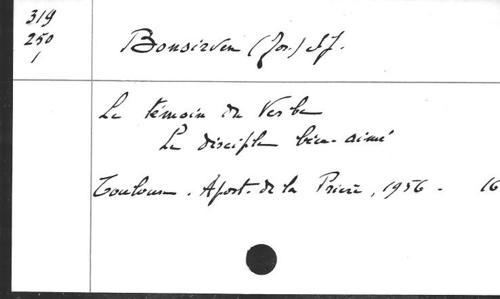 319
250
1
Bonsirven (Jos.) S.J.
Le témoin du Verbe
Le disciple bien-aimé
Toulouse. Apost. de la Prière, 1956 - 16